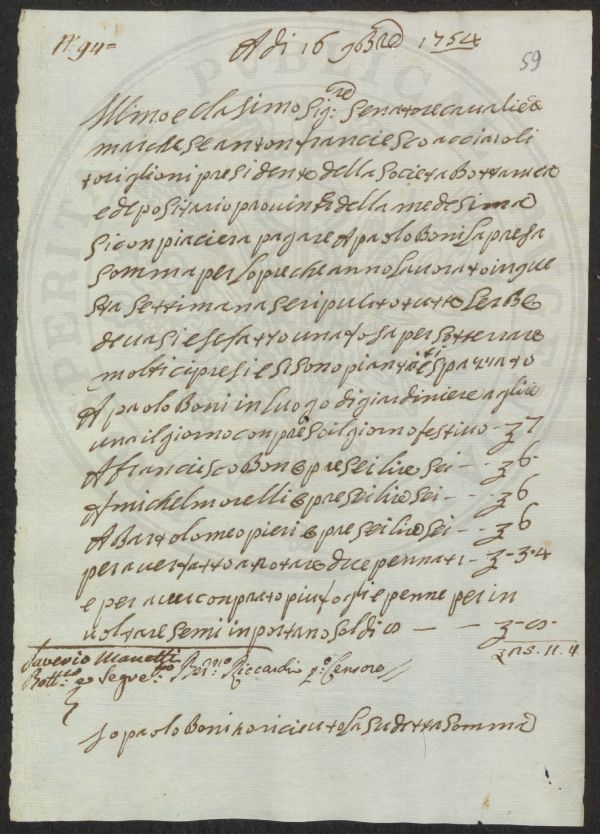 N: 94=
Adi 16 9Bre 1754
59
Illmo e Clasimo Sig:re Senatore cavaliere
marchese anton franciescо acciaioli
toriglioni presidente della Societa Bottanica
e depositario provin: della medesima
Si conpiaciera pagare A paolo Boni la presa
Somma per lopre che anno lavorato in que
sta settimana seripulito tutte lerbe
de vasi e se fatto una fosa per sotterrare
molti cipresi e si sono piantati e spazzato
A paolo Boni in luogo di giardiniere a glire
una il giorno conpreso il giorno festivo - 7
A francisco Bon opre sei lire sei - - 6
A michel morelli opre sei lire sei - - 6
A Bartolomeo pieri opre sei lire sei - - 6
per aver fatto arotare dice pennati - - 3-4
e per aver conprato piu fogli e penne per in
voltare semi inportano soldi
25.11.4
Saverio Manetti
Bott:co e Segre:rio Ber:no Riccardi p:o Censore
Io paolo Boni ho riceuto la sudetta somma